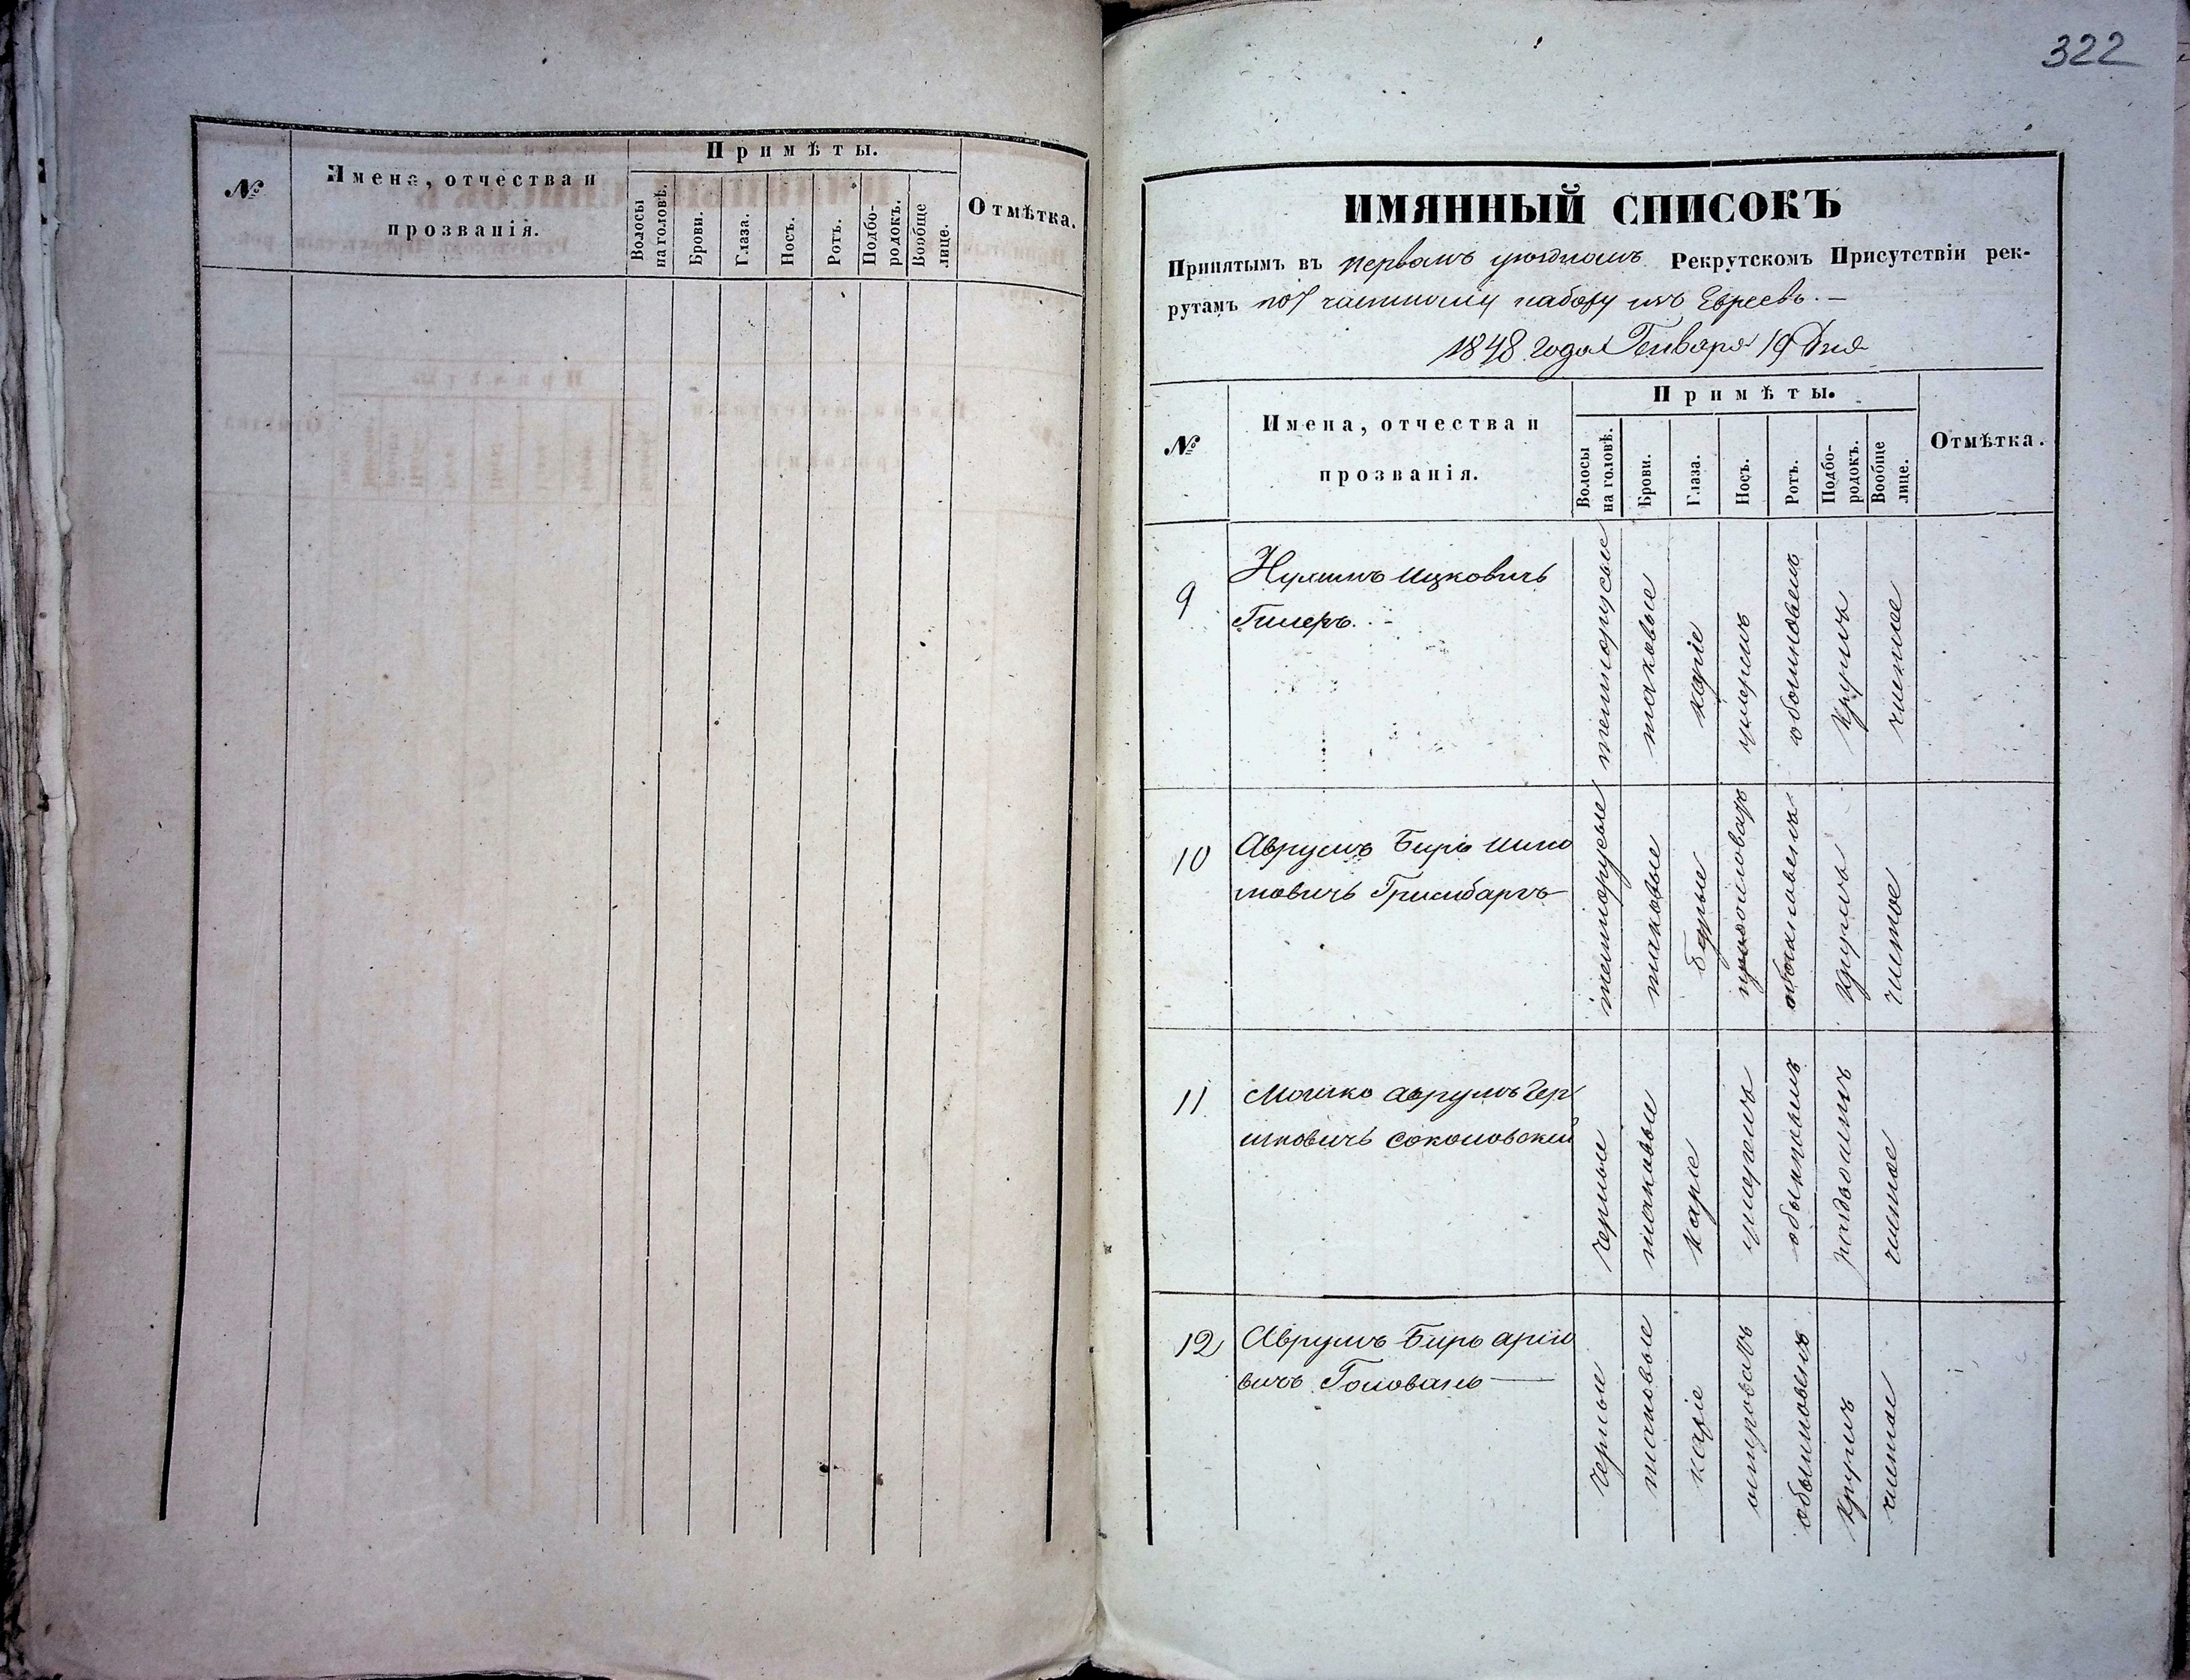 №
Имена, отчества и
прозванія.
Примѣты.
Волосы
на головѣ.
Брови.
Глаза.
Носъ.
Ротъ.
Подбо-
родокъ.
Вообще
лице.
Отмѣтка.
322
ИМЯННЫЙ СПИСОКЪ
Принятымъ въ первомъ уѣздномъ Рекрутскомъ Присутствіи рек-
рутамъ по частному набору изъ Евреевъ. —
1848 года Генваря 19 Дня
№
Имена, отчества и
прозванія.
Примѣты.
Волосы
на головѣ.
Брови.
Глаза.
Носъ.
Ротъ.
Подбо-
родокъ.
Вообще
лице.
Отмѣтка.
9
Нухимъ Ицковичъ
Гилеръ. -
темнорусые
таковые
каріе
умерен
обыкновен
кругл
чистое
10
Аврумъ Беръ
мовичъ
темнорусые
таковые
кругл
чистое
11
Мошко Аврумъ Гер
шковичъ Соколовский
черные
таковые
каріе
умерен
обыкновен
чистое
12
Аврумъ Беръ Аріо
вичъ Головань —
черные
таковые
каріе
обыкновен
кругл
чистое